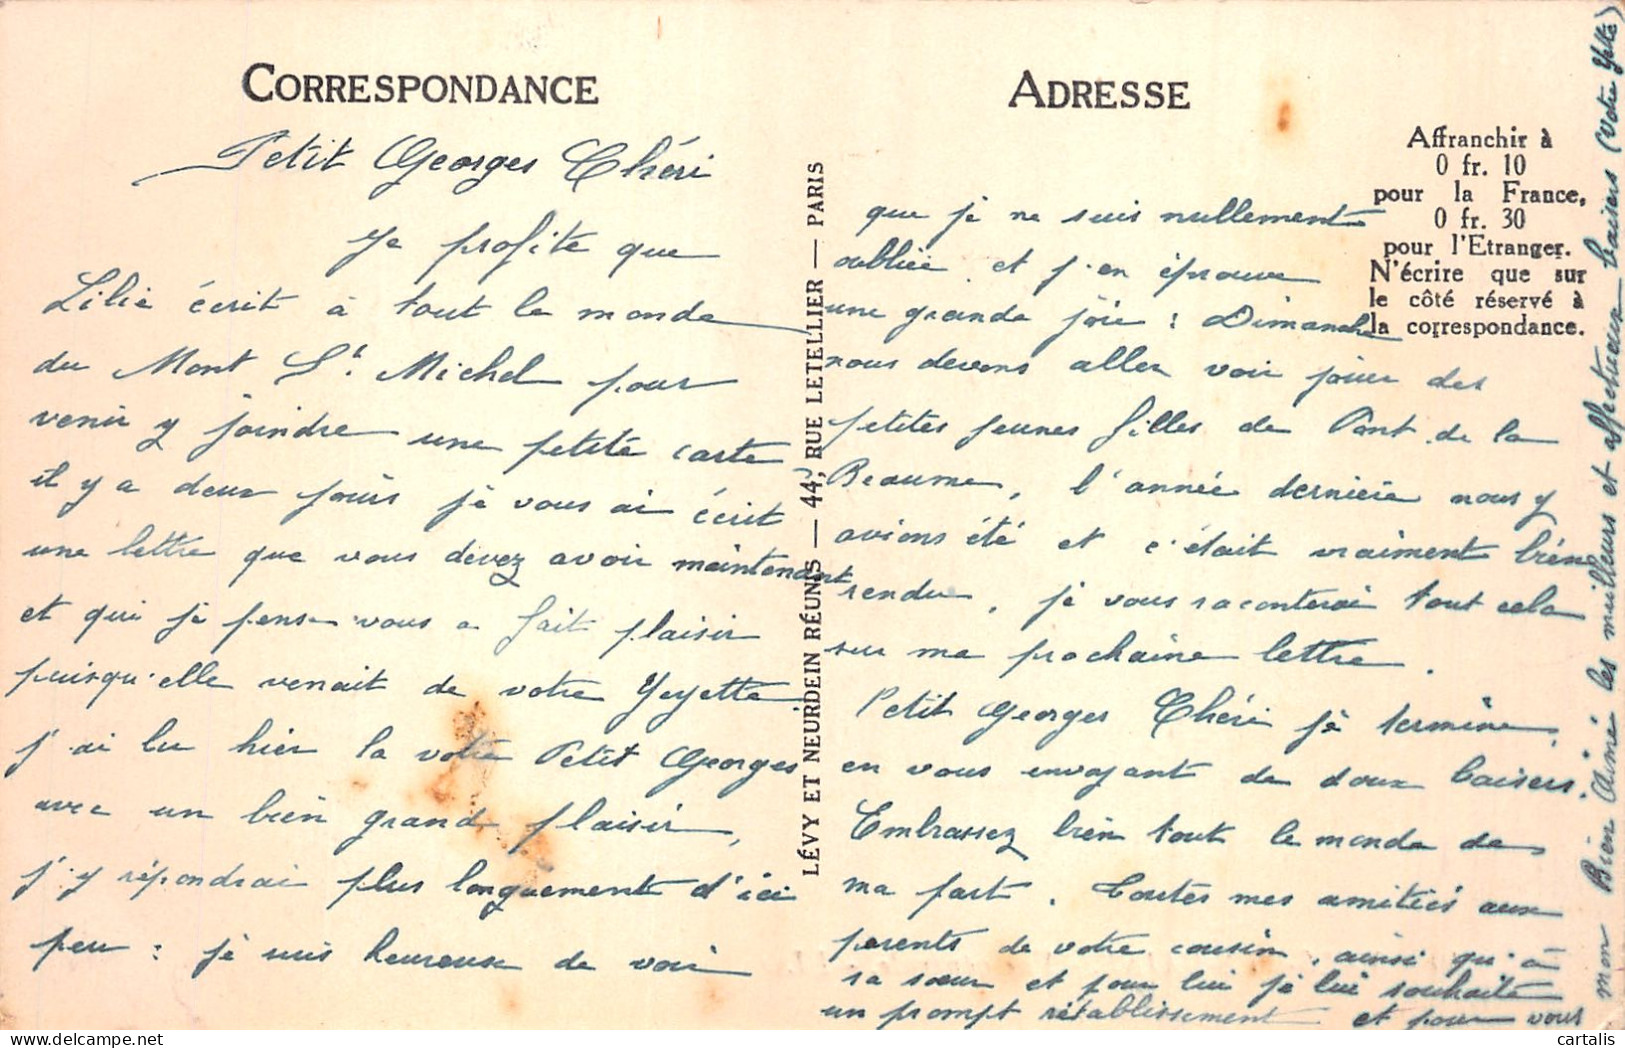 CORRESPONDANCE
Petit Georges Chéri
Je profite que
Lilie écrit à tout le monde
du Mont St. Michel pour
venir y joindre une petite carte
il y a deux jours je vous ai écrit
une lettre que vous devez avoir maintenant
et qui je pense vous a fait plaisir
puisqu'elle venait de votre Yeyette.
j'ai lu hier la votre Petit Georges
avec un bien grand plaisir,
j'y répondrai plus longuement d'ici
peu : je suis heureuse de voir
LÉVY ET NEURDEIN RÉUNIS — 44, RUE LETELLIER — PARIS
ADRESSE
Affranchir à
0 fr. 10
pour la France,
0 fr. 30
pour l'Etranger.
N'écrire que sur
le côté réservé à
la correspondance.
que je ne suis nullement
oubliée et j'en éprouve
une grande joie : Dimanche
nous devons aller voir jouer des
petites jeunes filles de Pont de la
Beaume, l'année dernière nous y
avions été et c'était vraiment bien
rendu, je vous raconterai tout cela
sur ma prochaine lettre.
Petit Georges Chéri je termine
en vous envoyant de doux baisers.
Embrassez bien tout le monde de
ma part. Toutes mes amitiés aux
parents de votre cousin, ainsi qu'à
sa sœur et pour lui je lui souhaite
un prompt rétablissement et pour vous
mon Bien Aimé les meilleurs et affectueux baisers (Votre Yette)
cartalis